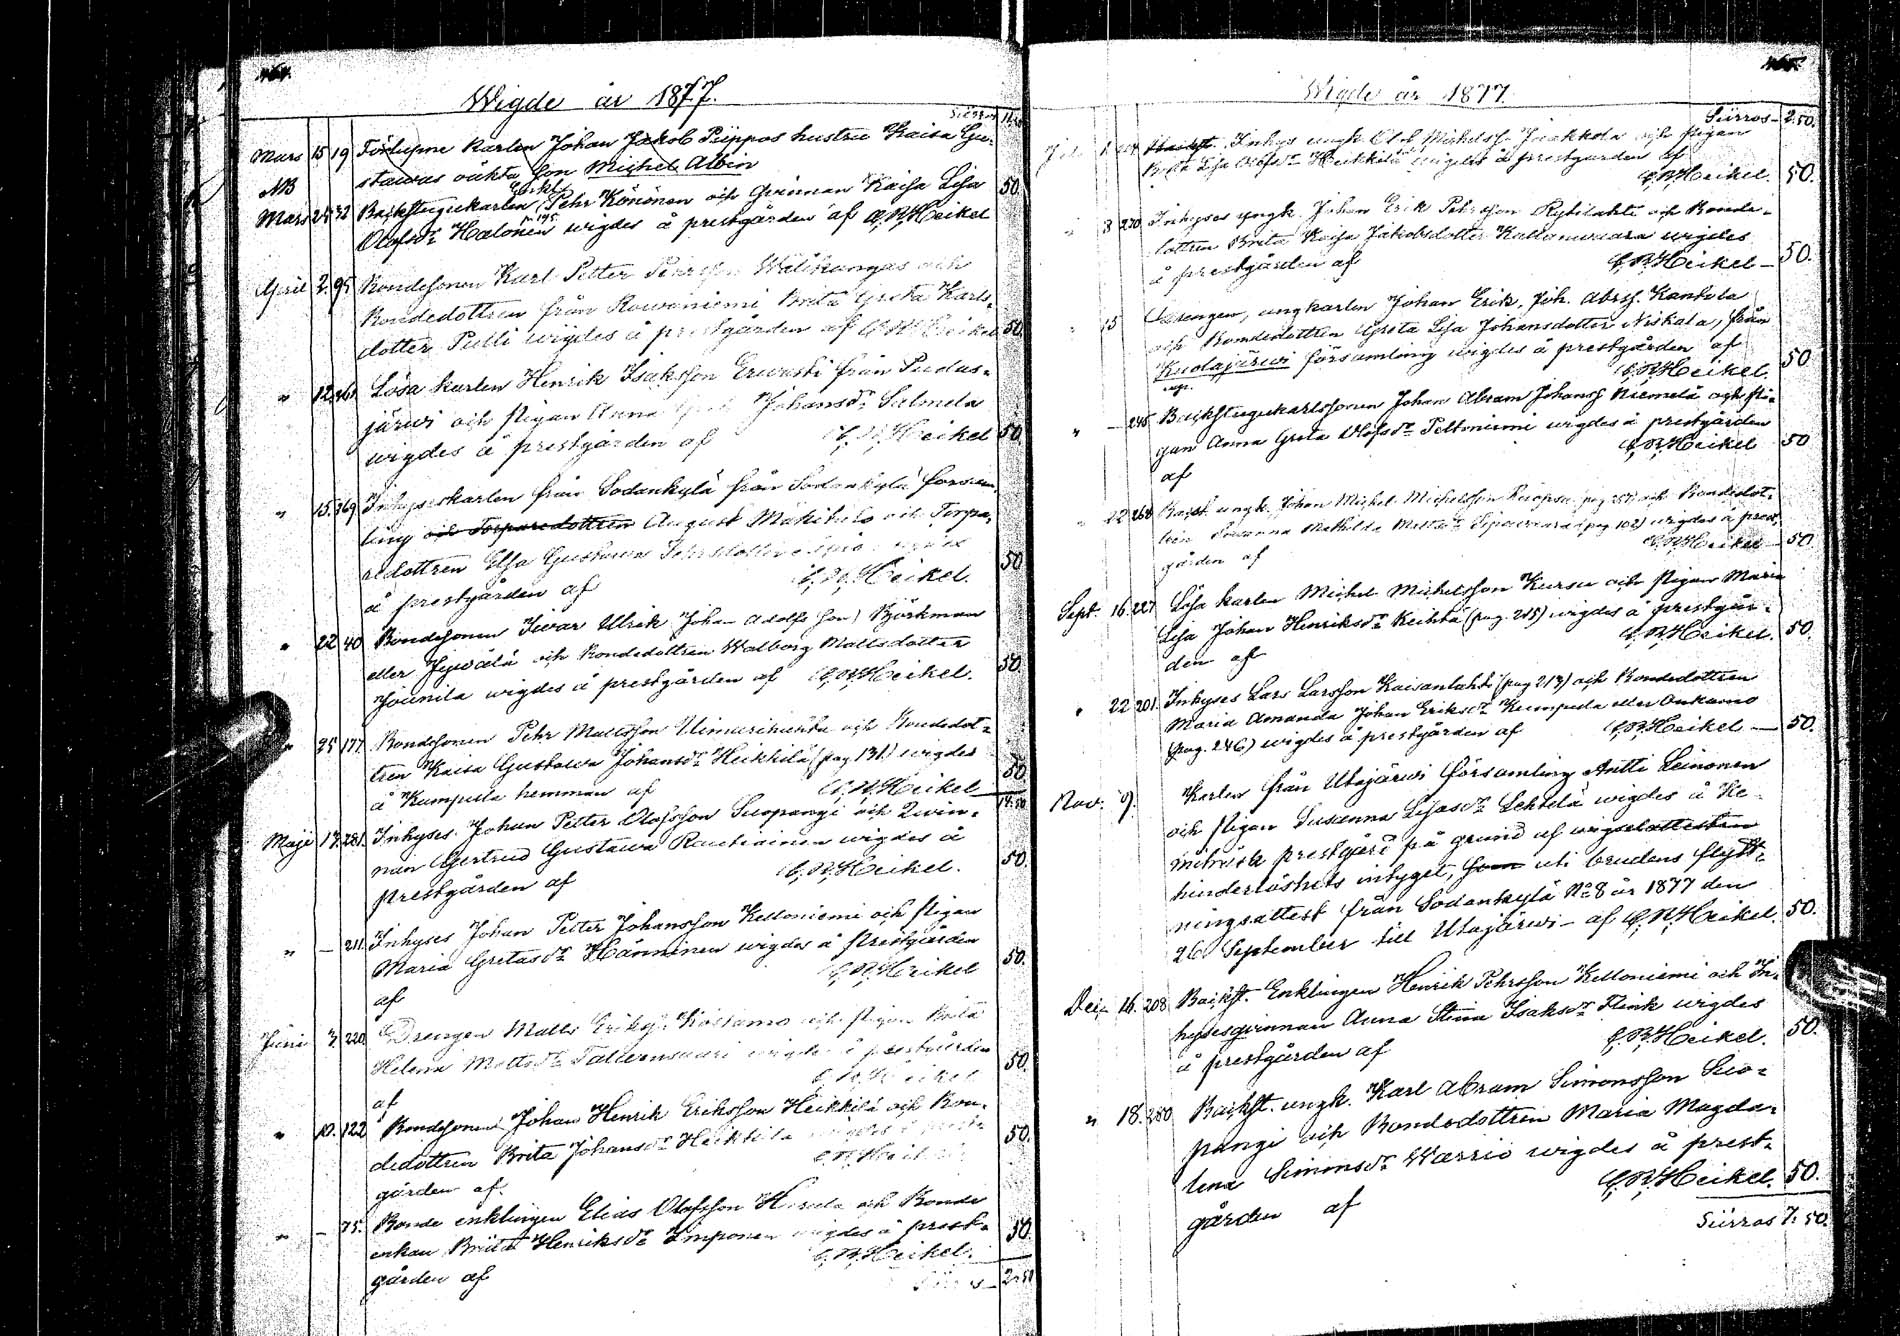 Wigde år 1877.
Siirros
Mars 15 19 Förlupne karlen Johan Jakob Piippos hustru Kaisa Gu-
stawas oäkta Son Michel Albin
NB
Enkl.
Mars 24 32 Backstugukarlen Pehr Könönen och Qvinnan Kaisa Lisa 50.
Olofsdr Hœlonen wigdes å prestgården af C, R, Heikel
April 2. 95 Bondesonen Karl Petter Pehrsson Wälikangas och
Bondedottren från Rowaniemi Brita Greta Karls-
dotter Pulli wigdes å prestgården af C, R, Heikel 50.
" 12. Lösa karlen Henrik Isaksson Erwasti från Pudas-
järwi och pigan Anna Johansdr Salmela
wigdes å prestgården af C, R, Heikel 50.
" 15. 169 Inhyseskarlen från Sodankylä från Sodankylä försam-
ling och Torparedottren August Mäkitalo och Torpa-
redottren Elsa Gustawa Pehrsdotter wigdes
å prestgården af C, R, Heikel. 50
" 22 40 Bondesonen Iwar Ulrik Johan Adolfs Son) Björkman
eller Jejwälä och Bondedottren Walborg Mattsdotter
Jounila wigdes å prestgården af C, R, Heikel. 50.
" 25 177. Bondesonen Pehr Mattsson Uimarihuhta och Bondedot-
tren Kaisa Gustawa Johansdr Heikkilä (pag 131.) wigdes
å Kumpula hemman af C, R, Heikel 50
Maji 17. 281. Inhyses. Johan Petter Olofsson Suopangi och Qwin-
nan Gertrud Gustawa Rautiainen wigdes å
prestgården af C, R, Heikel. 50.
" — 211. Inhyses Johan Petter Johansson Kelloniemi och pigan
Maria Gretasdr Hänninen wigdes å prestgården
af C, R, Heikel 50.
Juni 3. 220. Drengen Matts Eriks. Kostamo och pigan Brita
Helena Mattsdr Tallawaara wigdes å prestgården
af C, R, Heikel 50.
" 10. 122 Bondesonen Johan Henrik Eriksson Heikkilä och Bon-
dedottren Brita Johansdr Heikkilä wigdes å prest-
gården af. C, R, Heikel 50.
" — 75. Bonde enklingen Elias Olofsson och Bonde
enkan Briita Henriksdr Imponen wigdes å prest-
gården af C, R, Heikel. 50
Siirros — 2.50
Wigde år 1877.
Siirros — 2.50.
Juli 1 Inhys ungk. Olof Michelss. Juakkola och pigan
Brita Lisa Olofsdr Heikkilä wigdes å prestgården af
C, R, Heikel. 50.
" 8 230 Inhyses ungk. Johan Erik Pehrsson Kytilahti och Bonde-
dottren Brita Kaisa Jakobsdotter Kallonwaara wigdes
å prestgården af C, R, Heikel — 50.
" 15 Drengen, ungkarlen Johan Erik, Joh. Abrss. Kantola
och Bondedottren Greta Lisa Johansdotter Niskala, från
Kuolajärwi församling wigdes å prestgården af
C, R, Heikel. 50
" — 245 Backstugukarlssonen Johan Abram Johanss Niemelä och pi-
gan Anna Greta Olofsdr Peltoniemi wigdes å prestgården
af C, R, Heikel 50
" 22 268 Backst. ungk. Johan Michel Michelsson Ruopsa (pag 251) och Bondedot-
tren Susanna Mathilda Mattsdr (pag 102) wigdes å prest-
gården af C, R, Heikel — 50.
Sept. 16. 227 Lösa karlen Michel Michelsson Kursu och pigan Maria
Lisa Johan Henriksdr Keihtä (pag. 215) wigdes å prestgår-
den af C, R, Heikel. 50.
" 22 201. Inhyses Lars Larsson Kaisanlahti (pag 213) och Bondedottren
Maria Amanda Johan Eriksdr Kumpula eller Aukamo
(pag. 246) wigdes å prestgården af C, R, Heikel — 50.
Nov. 9. Karlen från Utajärwi församling Antti Leinonen
och pigan Susanna Lisasdr Lehtelä wigdes å Ke-
miträsk prestgård på grund af wigselattesten
hinderlöshets intyget, som uti brudens flytt-
ningsattest från Sodankylä No 8 år 1877 den
26 September till Utajärwi — af C, R, Heikel. 50.
Dec. 16. 208 Backst. Enklingen Henrik Pehrsson Kelloniemi och In-
hysesqvinnan Anna Stina Isaksdr Flink wigdes
å prestgården af C, R, Heikel. 50.
" 18. 280 Backst. ungk. Karl Abram Simonsson Suo-
pangi och Bondedottren Maria Magda-
lena Simonsdr Wœrriö wigdes å prest-
gården af C, R, Heikel. 50.
Siirros 7. 50.